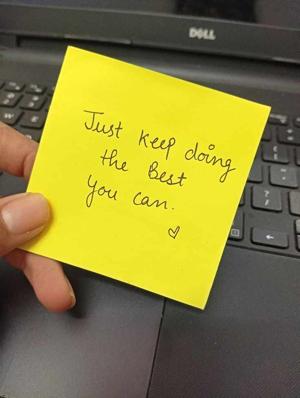 DELL
Just keep doing
the Best
you can.